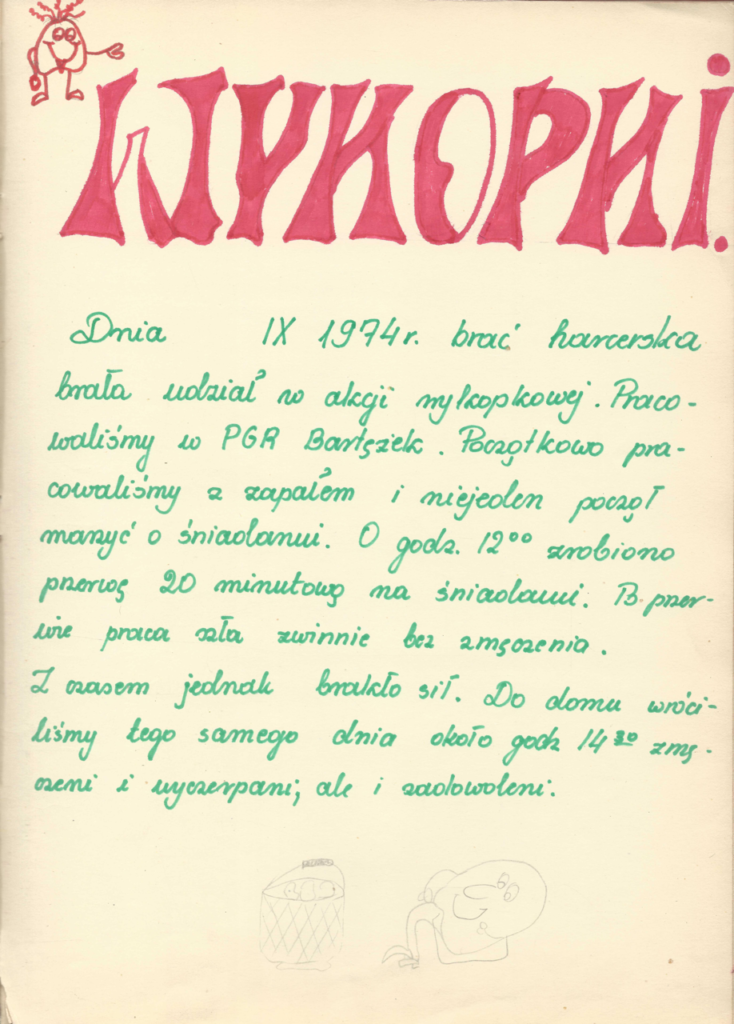 WYKOPKI.
Dnia IX 1974r. brać harcerska
brała udział w akcji wykopkowej. Praco-
waliśmy w PGR Bartężek. Początkowo pra-
cowaliśmy z zapałem i niejeden począł
marzyć o śniadaniu. O godz. 12°° zrobiono
przerwę 20 minutową na śniadanii. P. przer-
wie praca szła zwinnie bez zmęczenia.
Z czasem jednak brakło sił. Do domu wróci-
liśmy tego samego dnia około godz 14 30 zmę-
czeni i wyczerpani; ale i zadowoleni.